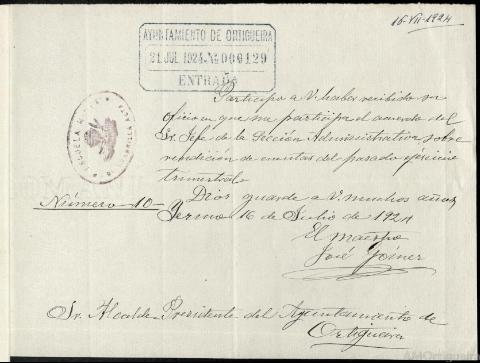 16-VII-1924
AYUNTAMIENTO DE ORTIGUEIRA
21 JUL 1924 No 000129
ENTRADA
Participo a V. haber recibido su
oficio en que me participa el acuerdo del
Sr. Jefe de la Sección Administrativa sobre
rendición de cuentas del pasado ejercicio
trimestral.
Dios guarde a V. muchos años,
Número 10-
Yermo 16 de Julio de 1924
El maestro
José Gómez
Sr. Alcalde Presidente del Ayuntamiento de
Ortigueira
AMOrtigueira